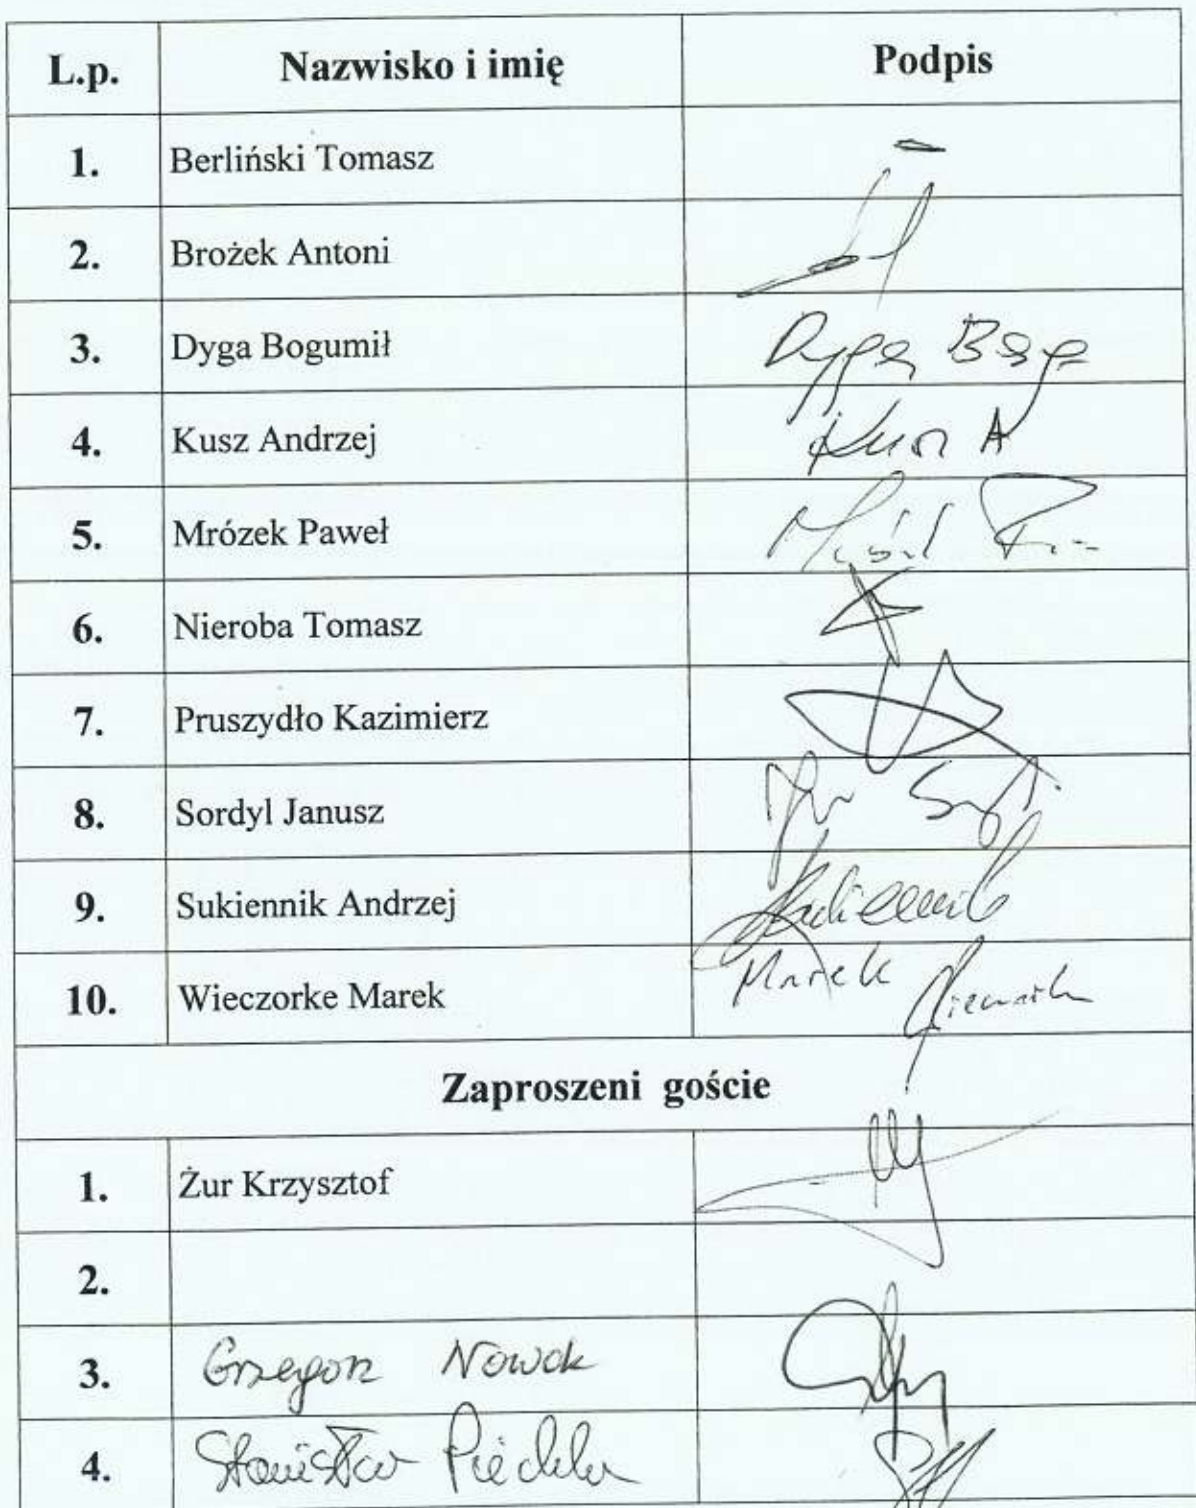 L.p. Nazwisko i imię Podpis
1. Berliński Tomasz
2. Brożek Antoni
3. Dyga Bogumił Dyga
4. Kusz Andrzej Kusz A
5. Mrózek Paweł
6. Nieroba Tomasz
7. Pruszydło Kazimierz
8. Sordyl Janusz
9. Sukiennik Andrzej Sukiennik
10. Wieczorke Marek Marek
Zaproszeni goście
1. Żur Krzysztof
2.
3. Grzegorz Nowak
4. Stanisław